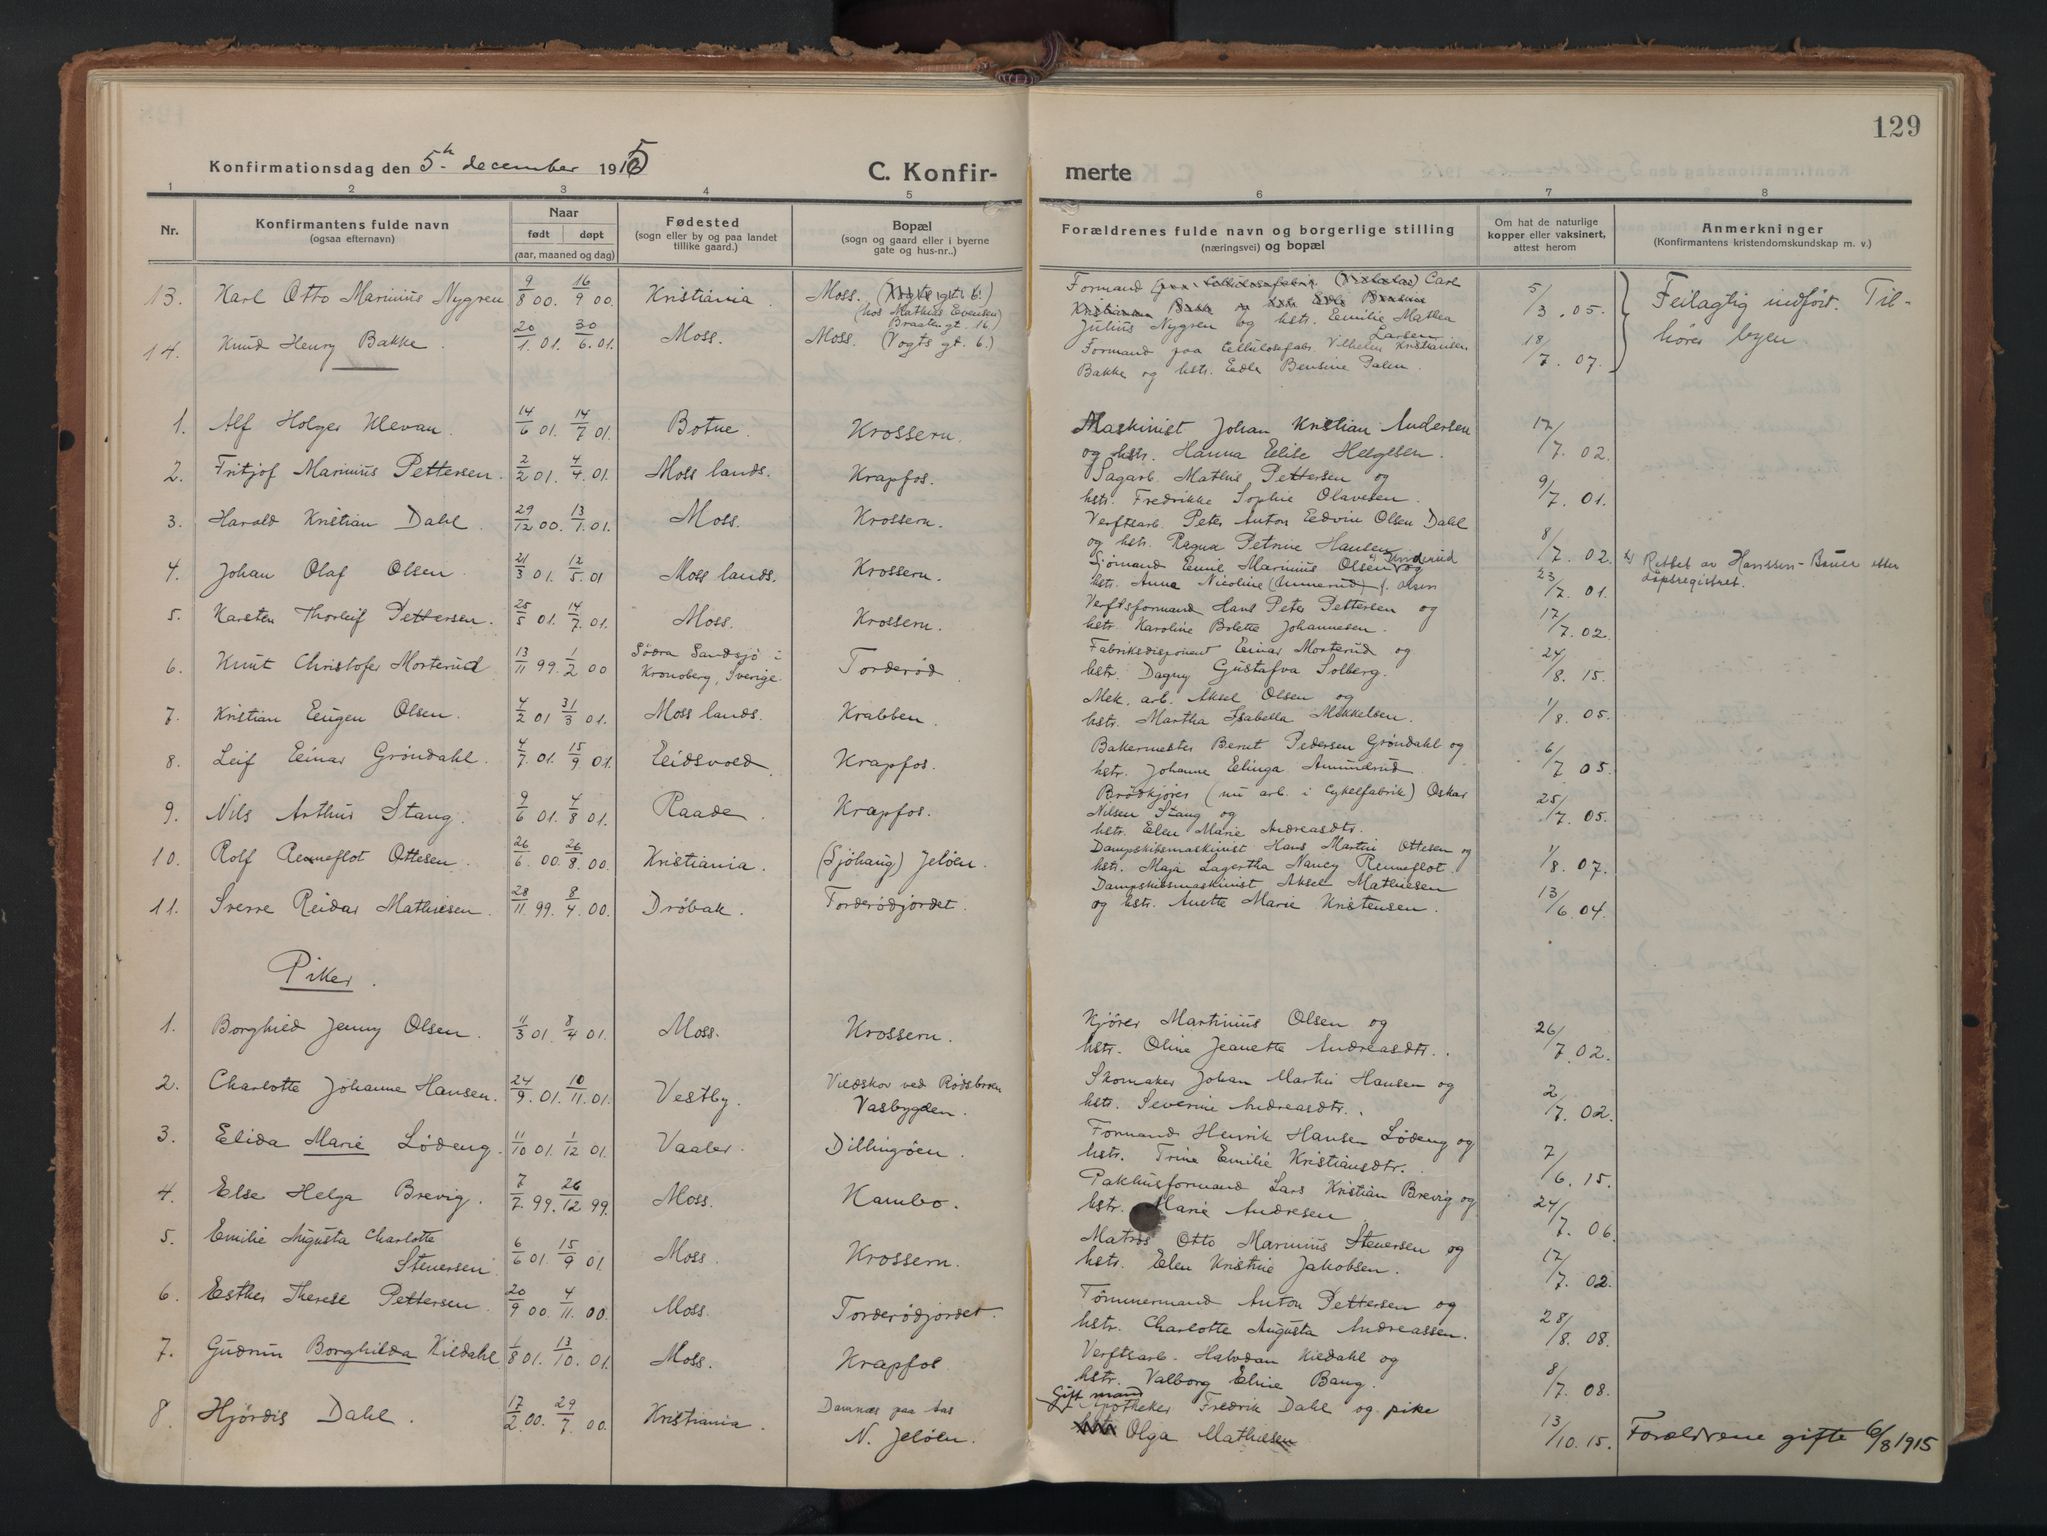 129
Konfirmationsdag den 5th december 1915 C. Konfir- merte
1 2 3 4 5 6 7 8
Nr. Konfirmantens fulde navn (ogsaa efternavn) Naar født døpt (aar, maaned og dag) Fødested (sogn eller by og paa landet tillike gaard.) Bopæl (sogn og gaard eller i byerne gate og hus-nr..) Forældrenes fulde navn og borgerlige stilling (næringsvei) og bopæl Om hat de naturlige kopper eller vaksinert, attest herom Anmerkninger (Konfirmantens kristendomskundskap m. v.)
13. Karl Otto Marinius Nygren 9/8 00. 16/9 00. Kristiania. Moss. (Vogts gt. 6.) (hos Mathius Evensen) Braaten gt. 16.) Formand Carl Julius Nygren og hstr. Emilie Mathea Larsen 5/3. 05. Feilagtig indført. Til-
14. Knud Henry Bakke. 20/1. 01. 30/6. 01. Moss. Moss. (Vogts gt. 6.) Formand paa Cellulosefabr. Vilhelm Kristiansen Bakke og hstr. Edle Bensine Palen. 18/7. 07. hører byen.
1. Alf Holger Klevan. 14/6 01. 14/7 01. Botne. Krossern. Maskinist Johan Kristian Andersen
og hstr. Hanna Elise Helgesen. 17/7. 02.
2. Fritjof Marinius Pettersen. 2/2 01. 4/4 01. Moss lands. Krapfos. Sagarb. Mathis Pettersen og
hstr. Fredrikke Sophie Olavesen. 9/7. 01.
3. Harald Kristian Dahl. 29/12 00. 13/1. 01. Moss. Krossern. Verftsarb. Peter Anton Edvin Olsen Dahl
og hstr. Ragna Petrine Hansen 8/7. 02.
4. Johan Olaf Olsen. 21/3 01. 12/5. 01 Moss lands. Krossern. Sjømand Emil Marinius Olsen og
hstr. Anna Nicoline (Annerud) f. Olsen 23/7. 01. Rettet av Hanssen-Bauer efter
døpsregistret.
5. Karsten Thorleif Pettersen. 25/5 01. 14/7. 01. Moss. Krossern. Verftsformand Hans Peter Pettersen og
hstr. Karoline Bolette Johannesen. 17/7. 02.
6. Knut Christofer Morterud 13/11 99. 1/2 00 Södra Sandsjö i Kronoberg, Sverige. Torderød Fabriksdisponent Einar Morterud og
hstr. Dagny Gustafva Solberg. 24/8. 15.
7. Kristian Eugen Olsen. 4/2 01 31/3 01. Moss lands. Krabben. Mek. arb. Aksel Olsen og
hstr. Martha Isabella Mikkelsen. 1/8. 05.
8. Leif Einar Grøndahl. 4/7. 01. 15/9 01. Eidsvold. Krapfos. Bakermester Bernt Pedersen Grøndahl og
hstr. Johanne Elinga Amundrud. 6/7 05.
9. Nils Arthur Stang. 9/6 01. 4/8 01. Raade. Krapfos. Brødkjører (nu arb. i Cykelfabrik) Oskar
Nilsen Stang og
hstr. Elen Marie Andreasdtr. 25/7. 05.
10. Rolf Renneflot Ottesen. 26/6. 00. 26/8. 00. Kristiania. (Sjøhaug) Jeløen. Dampskibsmaskinist Hans Martin Ottesen og
hstr. Maja Lagertha Nancy Renneflot. 1/8. 07.
11. Sverre Reidar Mathiesen. 28/11. 99. 8/4. 00. Drøbak. Torderødjordet. Dampskibsmaskinist Aksel Mathiesen
og hstr. Anette Marie Kristensen. 13/6. 04.
Piker.
1. Borghild Jenny Olsen. 11/3 01. 8/4 01. Moss. Krossern. Kjører Martinius Olsen og
hstr. Oline Jeanette Andreasdtr. 26/7. 02.
2. Charlotte Johanne Hansen. 24/9. 01. 10/11. 01. Vestby. Vildskov ved Rødsbroen Vasbygden. Skomaker Johan Martin Hansen og
hstr. Severine Andreasdtr. 2/7. 02.
3. Elida Marie Lødeng. 11/10 01. 1/12 01. Vaaler. Dillingøen. Formand Henrik Hansen Lødeng og
hstr. Trine Emilie Kristiansdtr. 7/6. 15.
4. Else Helga Brevig. 7/7. 99. 26/12 99. Moss. Kambo. Pakhusformand Lars Kristian Brevig og
hstr. Marie Andresen 24/7. 06.
5. Emilie Augusta Charlotte
Stenersen. 6/6 01. 15/9 01. Moss. Krossern. Matros Otto Marinius Stenersen og
hstr. Elen Kristine Jakobsen. 17/7. 02.
6. Esther Therese Pettersen. 20/9 00. 4/11. 00. Moss. Torderødjordet. Tømmermand Anton Pettersen og
hstr. Charlotte Augusta Andreassen. 28/8. 08.
7. Gudrun Borghilda Kildahl 1/8 01. 13/10. 01. Moss. Krapfos. Verftsarb. Halvdan Kildahl og
hstr. Valborg Eline Baug. 8/7. 08.
8. Hjørdis Dahl. 17/2. 00. 29/7. 00. Kristiania. Damnæs paa Aas N. Jeløen. Gift mand
Apotheker Fredrik Dahl og pike
Olga Mathiesen 13/10. 15. Forældrene gifte 6/8 1915